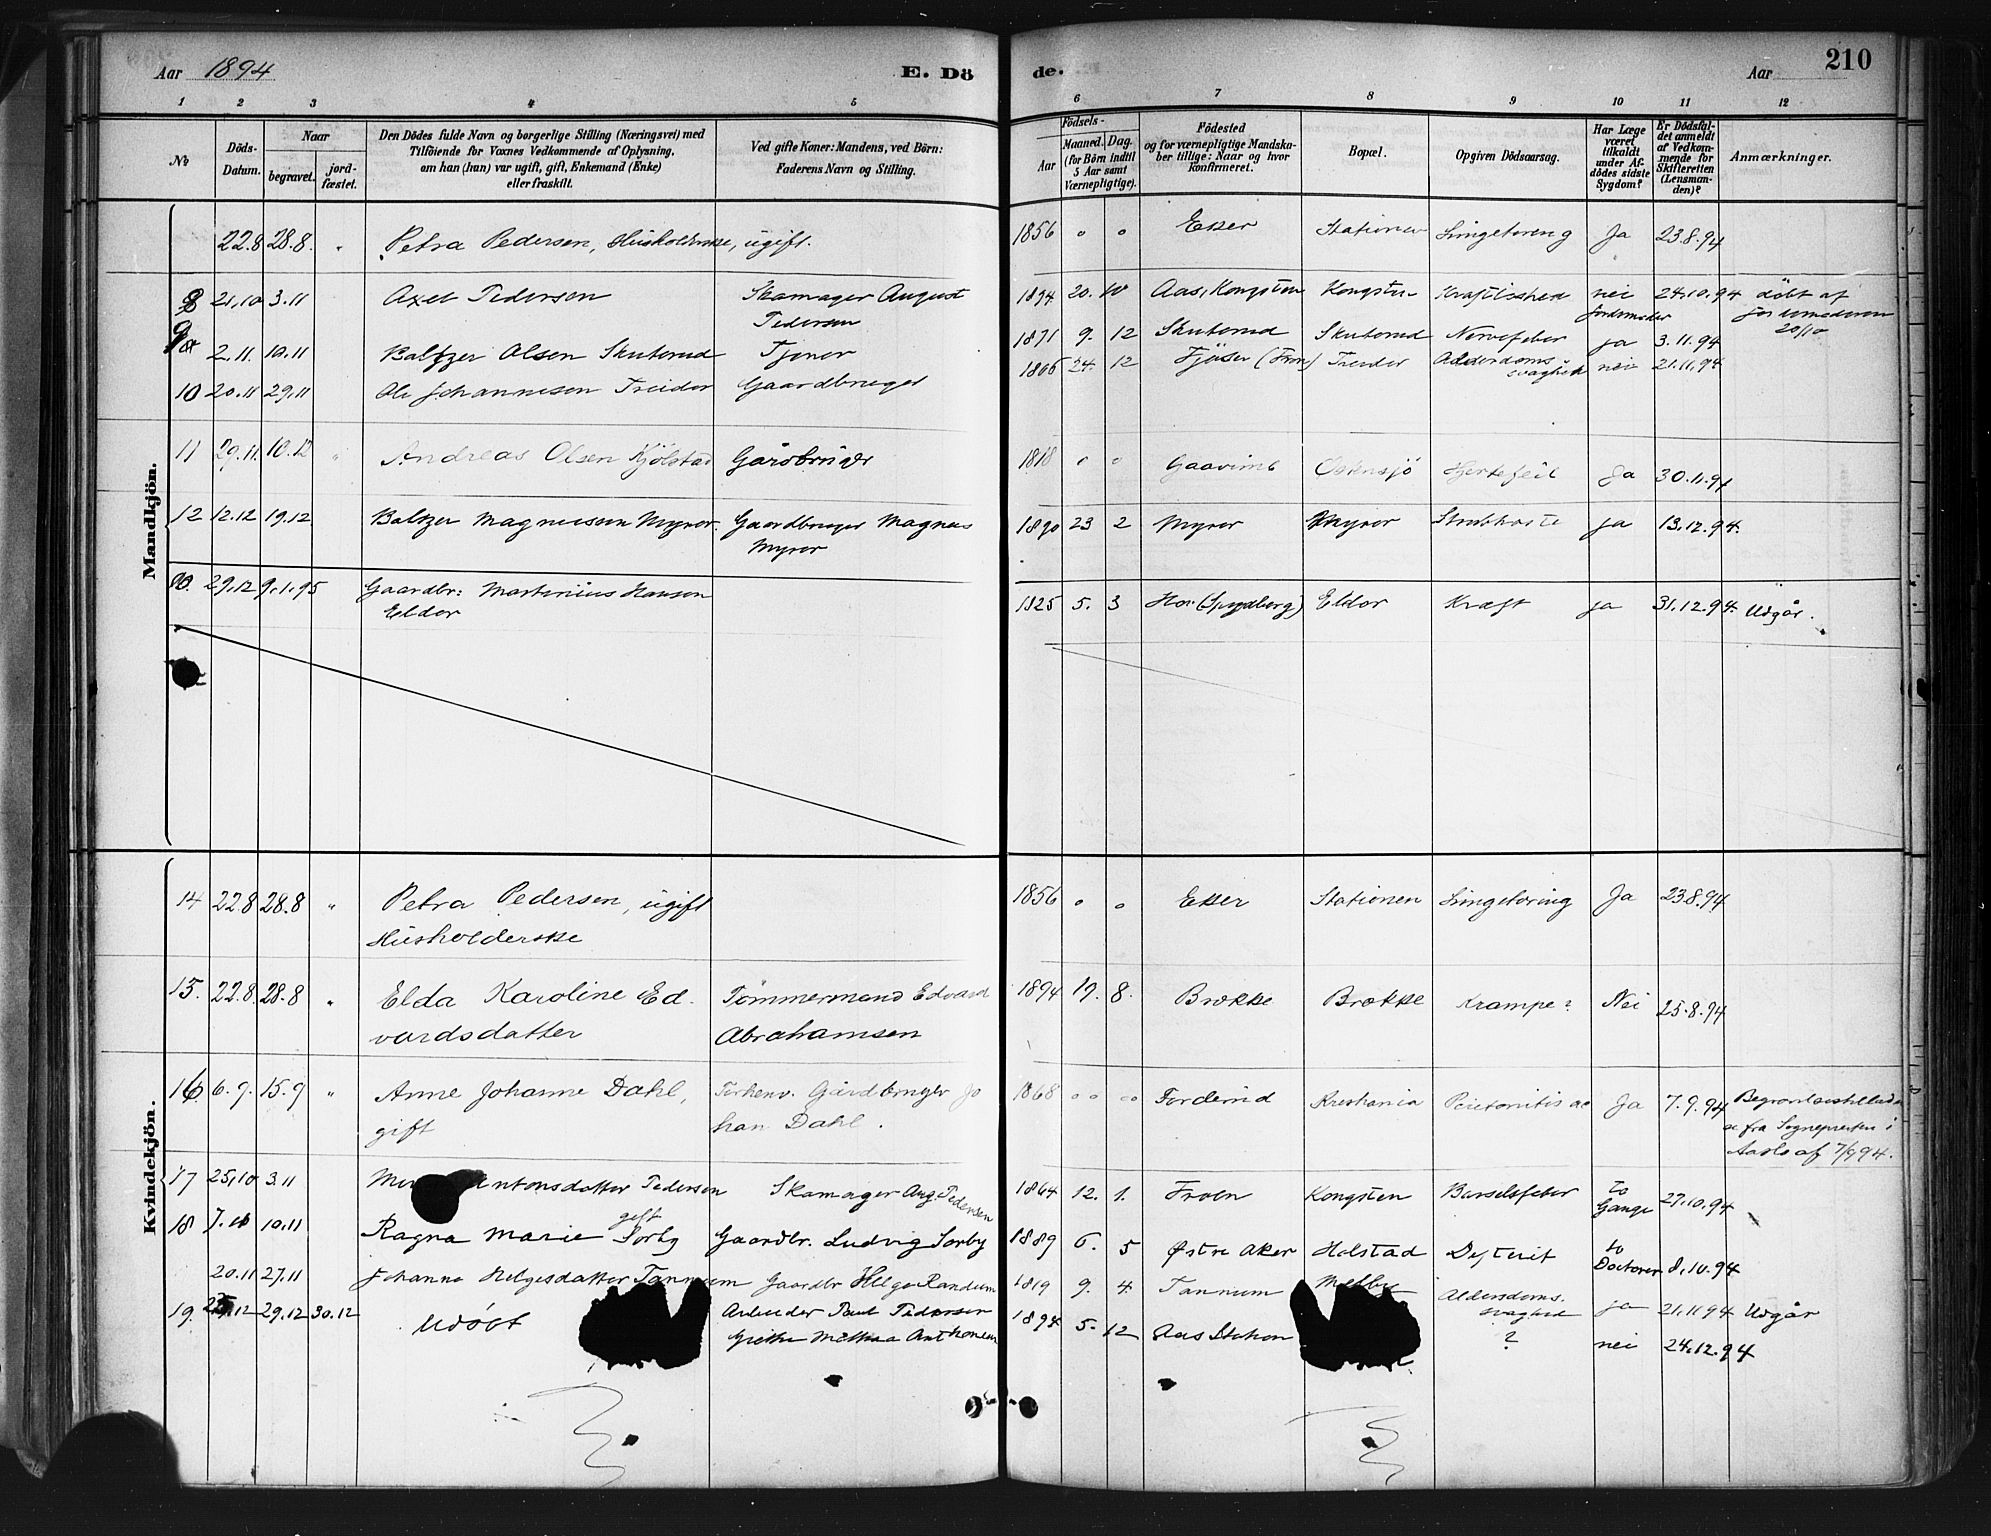 Aar 1894
E. Dö
de.
Aar
210
1 2 3 4 5 6 7 8 9 10 11 12
No
Döds-Datum.
Naar
begravet.
jord-fæstet.
Den Dödes fulde Navn og borgerlige Stilling (Næringsvei) med
Tilföiende for Voxnes Vedkommende af Oplysning,
om han (hun) var ugift, gift, Enkemand (Enke)
eller fraskilt.
Ved gifte Koner: Mandens, ved Börn:
Faderens Navn og Stilling.
Födsels-
Aar
Maaned. Dag.
(for Börn indtil
5 Aar samt
Værnepligtige).
Födested
og for værnepligtige Mandska-
ber tillige: Naar og hvor
konfirmeret.
Bopæl.
Opgiven Dödsaarsag.
Har Læge
været
tilkaldt
under Af-
dödes sidste
Sygdom?
Er Dödsfal-
det anmeldt
af Vedkom-
mende for
Skifteretten
(Lensman-
den)?
Anmærkninger.
Mandkjön.
22.8 28.8. " Petra Pedersen, Husholderske, ugift. 1856 o o Eker Stationen Lungetæring Ja 23.8.94
8 21.10 3.11 Axel Pedersen Skomager August Pedersen 1894 20. 10 Aas, Kongsten Kongsten Kraftløshed nei jordemoder 24.10.94 döbt af jordemoderen 20/10
9 2.11. 10.11 Baltzer Olsen Skuterud Tjener 1871 9. 12 Skuterud Skuterud Nervefeber ja 3.11.94
10 20.11 29.11 Ole Johannesen Treider Gaardbruger 1806 24. 12 Treider Alderdoms svaghed nei 21.11.94
11 29.11. 10.12 " Andreas Olsen Kjölstad Gårdbruger 1818 o o Østensjö Hjertefeil Ja 30.11.94
12 12.12 19.12 Baltzer Magnussen Myrer. Gaardbruger Magnus Myrer 1890 23 2 Myrer Myrer Strubhoste ja 13.12.94.
29.12 9.1.95 Gaardbr: Martinius Hansen Eldor 1825 5. 3 (Spydberg) Eldor Kræft ja 31.12.94. Udgår.
Kvindekjön.
14 22.8 28.8 " Petra Pedersen, ugift
Husholderske 1856 o o Eker Stationen Lungetæring Ja 23.8.94
15. 22.8. 28.8 " Elda Karoline Ed-
vardsdatter Tömmermand Edvard
Abrahamsen 1894 19. 8. Brække Brække Krampe? Nei 25.8.94
16 6.9. 15.9 " Anne Johanne Dahl,
gift Gårdbruger Jo
han Dahl. 1868 o o Forderud Kristiania Peritonitis ac Ja 7.9.94 fra Sognepresten i
af 7/9 94.
17 25.10 3.11 ntonsdatter Pedersen
gift Skomager Aug. Pedersen 1864 12. 1. Froen Kongsten Barselfeber to Gange 27.10.94
18 10.11 Ragna Marie Sorby Gaardbr. Ludvig Sorby 1889 6. 5 Østre Aker Holstad Difterit to Doctorer 8.10.94
20.11 27.11 Johanne Helgesdatter Tannum Gaardbr Helge Randum 1819 9. 4. Tannum Alderdoms- svaghed ja 21.11.94 Udgår
19. 29.12 30.12 Udöbt Arbeider Paul Pedersen
1894 5. 12 Aas Station ? nei 24.12.94